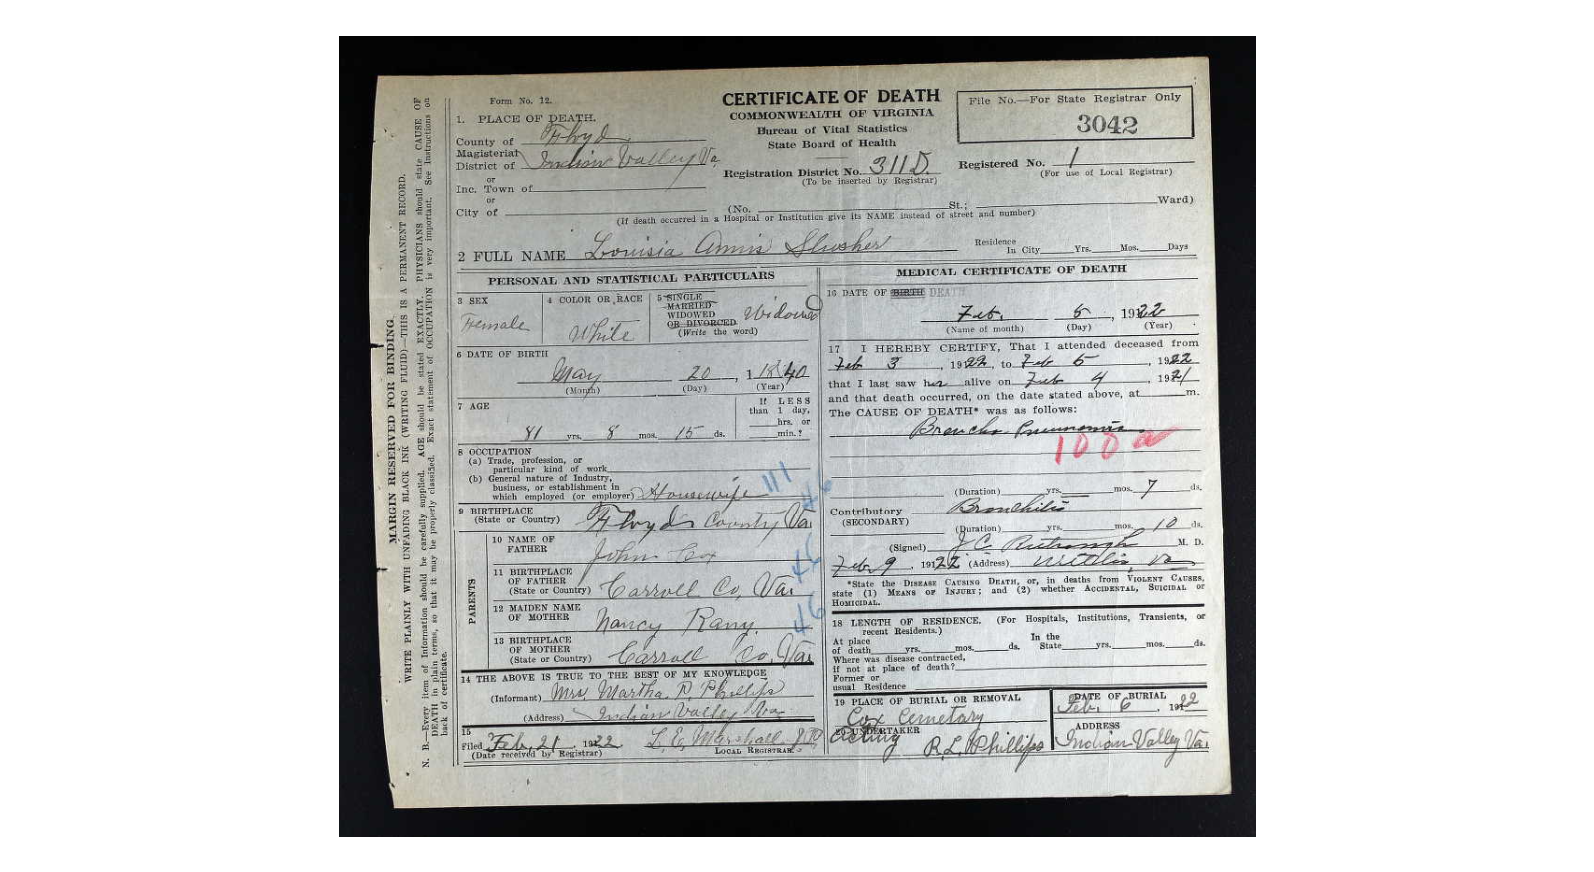 Form No. 12.
CERTIFICATE OF DEATH
COMMONWEALTH OF VIRGINIA
Bureau of Vital Statistics
State Board of Health
File No.—For State Registrar Only
3042
1. PLACE OF DEATH.
County of Floyd
Magisterial
District of Indian Valley Va.
or
Inc. Town of
or
City of
Registration District No. 311D.
(To be inserted by Registrar)
Registered No. 1
(For use of Local Registrar)
(No. St.; Ward)
(If death occurred in a Hospital or Institution give its NAME instead of street and number)
2 FULL NAME Louisia Annis Slusher
Residence
In City Yrs. Mos. Days
PERSONAL AND STATISTICAL PARTICULARS
3 SEX
Female
4 COLOR OR RACE
White
5 SINGLE
MARRIED
WIDOWED
OR DIVORCED
(Write the word)
Widowed
6 DATE OF BIRTH
May 20, 1840
(Month) (Day) (Year)
7 AGE
81 yrs. 8 mos. 15 ds.
If LESS
than 1 day,
hrs. or
min.?
8 OCCUPATION
(a) Trade, profession, or
particular kind of work
(b) General nature of Industry,
business, or establishment in
which employed (or employer) Housewife
111
46
9 BIRTHPLACE
(State or Country) Floyd County Va.
PARENTS
10 NAME OF
FATHER John Cox
11 BIRTHPLACE
OF FATHER
(State or Country) Carroll Co, Va.
46
12 MAIDEN NAME
OF MOTHER Nancy Rany
46
13 BIRTHPLACE
OF MOTHER
(State or Country) Carroll Co, Va.
14 THE ABOVE IS TRUE TO THE BEST OF MY KNOWLEDGE
(Informant) Mrs Martha R. Phillips
(Address) Indian Valley Va
15
Filed Feb, 21, 1922 L. E. Marshall
(Date received by Registrar) LOCAL REGISTRAR.
MEDICAL CERTIFICATE OF DEATH
16 DATE OF BIRTH DEATH
Feb. 5, 1922
(Name of month) (Day) (Year)
17 I HEREBY CERTIFY, That I attended deceased from
Feb 3, 1922, to Feb 5, 1922
that I last saw her alive on Feb 4, 1921
and that death occurred, on the date stated above, at m.
The CAUSE OF DEATH* was as follows:
Broncho Pneumonia
100 a
(Duration) yrs. mos. 7 ds.
Contributory Bronchitis
(SECONDARY)
(Duration) yrs. mos. 10 ds.
(Signed) J C Rutrough M. D.
Feb 9, 1922 (Address) Willis, Va
*State the DISEASE CAUSING DEATH, or, in deaths from VIOLENT CAUSES,
state (1) MEANS OF INJURY; and (2) whether ACCIDENTAL, SUICIDAL or
HOMICIDAL.
18 LENGTH OF RESIDENCE. (For Hospitals, Institutions, Transients, or
recent Residents.)
At place
of death yrs. mos. ds.
In the
State yrs. mos. ds.
Where was disease contracted,
if not at place of death?
Former or
usual Residence
19 PLACE OF BURIAL OR REMOVAL
Cox Cemetary
DATE OF BURIAL
Feb. 6, 1922
20 UNDERTAKER
Acting R. L. Phillips
ADDRESS
Indian Valley Va.
MARGIN RESERVED FOR BINDING.
WRITE PLAINLY WITH UNFADING BLACK INK (WRITING FLUID)—THIS IS A PERMANENT RECORD.
N. B.—Every item of Information should be carefully supplied. AGE should be stated EXACTLY. PHYSICIANS should state CAUSE OF
DEATH in plain terms, so that it may be properly classified. Exact statement of OCCUPATION is very important. See Instructions on
back of certificate.